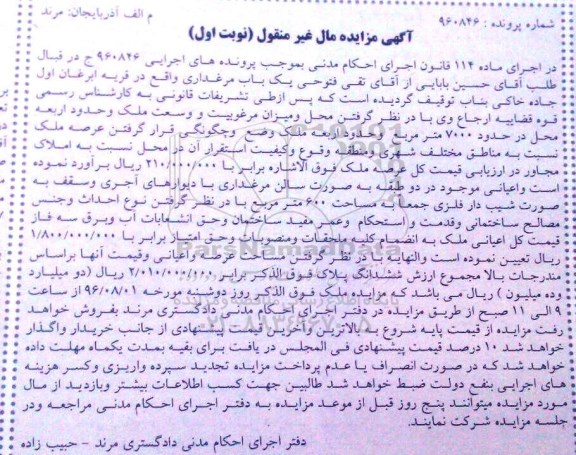 شماره پرونده : ۹۶۰۸۴۶
م الف آذربایجان: مرند
آگهی مزایده مال غیر منقول (نوبت اول)
در اجرای ماده ۱۱۴ قانون اجرای احکام مدنی بموجب پرونده های اجرایی ۹۶۰۸۴۶ ج در قبال
طلب آقای حسین بابایی از آقای تقی فتوحی یک باب مرغداری واقع در قریه ابرغان اول
جاده خاکی بناب توقیف گردیده است که پس ازطی تشریفات قانونی به کارشناس رسمی
قوه قضاییه ارجاع وی با در نظر گرفتن محل ومیزان مرغوبیت و وسعت ملک وحدود اربعه
محل در حدود ۷۰۰۰ متر مربع ملک وضع وچگونگی قرار گرفتن عرصه ملک
نسبت به مناطق مختلف شهری منطقه وقوع وکیفیت استقرار آن در محل نسبت به املاک
مجاور در ارزیابی قیمت کل عرصه ملک فوق الاشاره برابر با ۲۱۰/۰۰۰/۰۰۰ ریال برآورد نموده
است واعیانی موجود در دو طبقه به صورت سالن مرغداری با دیوارهای آجری وسقف به
صورت شیب دار فلزی جمعا به مساحت ۶۰۰ متر مربع با در نظر گرفتن نوع احداث وجنس
مصالح ساختمانی وقدمت و استحکام وعمر مفید ساختمان وحق انشعابات آب وبرق سه فاز
قیمت کل اعیانی ملک به انضمام کلیه ملحقات ومنصوبات وحق امتیاز برابر با ۱/۸۰۰/۰۰۰/۰۰۰
ریال تعیین نموده است والنهایه با در نظر گرفتن مساحت عرصه واعیانی وقیمت آنها براساس
مندرجات بالا مجموع ارزش ششدانگ پلاک فوق الذکر برابر ۲/۰۱۰/۰۰۰/۰۰۰ ریال (دو میلیارد
وده میلیون ) ریال می باشد که مزایده ملک فوق الذکر روز دوشنبه مورخه ۹۶/۰۸/۰۱ از ساعت
۹ الی ۱۱ صبح از طریق مزایده در دفتر اجرای احکام مدنی دادگستری مرند بفروش خواهد
رفت مزایده از قیمت پایه شروع به بالاترین وآخرین قیمت پیشنهادی از جانب خریدار واگذار
خواهد شد ۱۰ درصد قیمت پیشنهادی فی المجلس در یافت برای بقیه بمدت یکماه مهلت داده
خواهد شد که در صورت انصراف یا عدم پرداخت مزایده تجدید سپرده واریزی وکسر هزینه
های اجرایی بنفع دولت ضبط خواهد شد طالبین جهت کسب اطلاعات بیشتر وبازدید از مال
مورد مزایده میتوانند پنج روز قبل از موعد مزایده به دفتر اجرای احکام مدنی مراجعه ودر
جلسه مزایده شرکت نمایند.
دفتر اجرای احکام مدنی دادگستری مرند – حبیب زاده